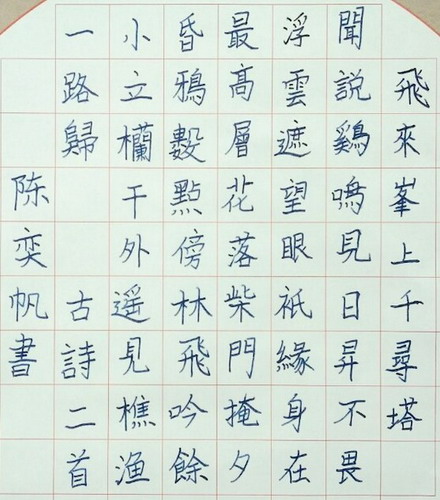 飛來峯上千尋塔
聞說鷄鳴見日昇不畏
浮雲遮望眼祇緣身在
最高層花落柴門掩夕
昏鴉數點傍林飛吟餘
小立欄干外遥見樵渔
一路歸 古詩二首
陈奕帆書